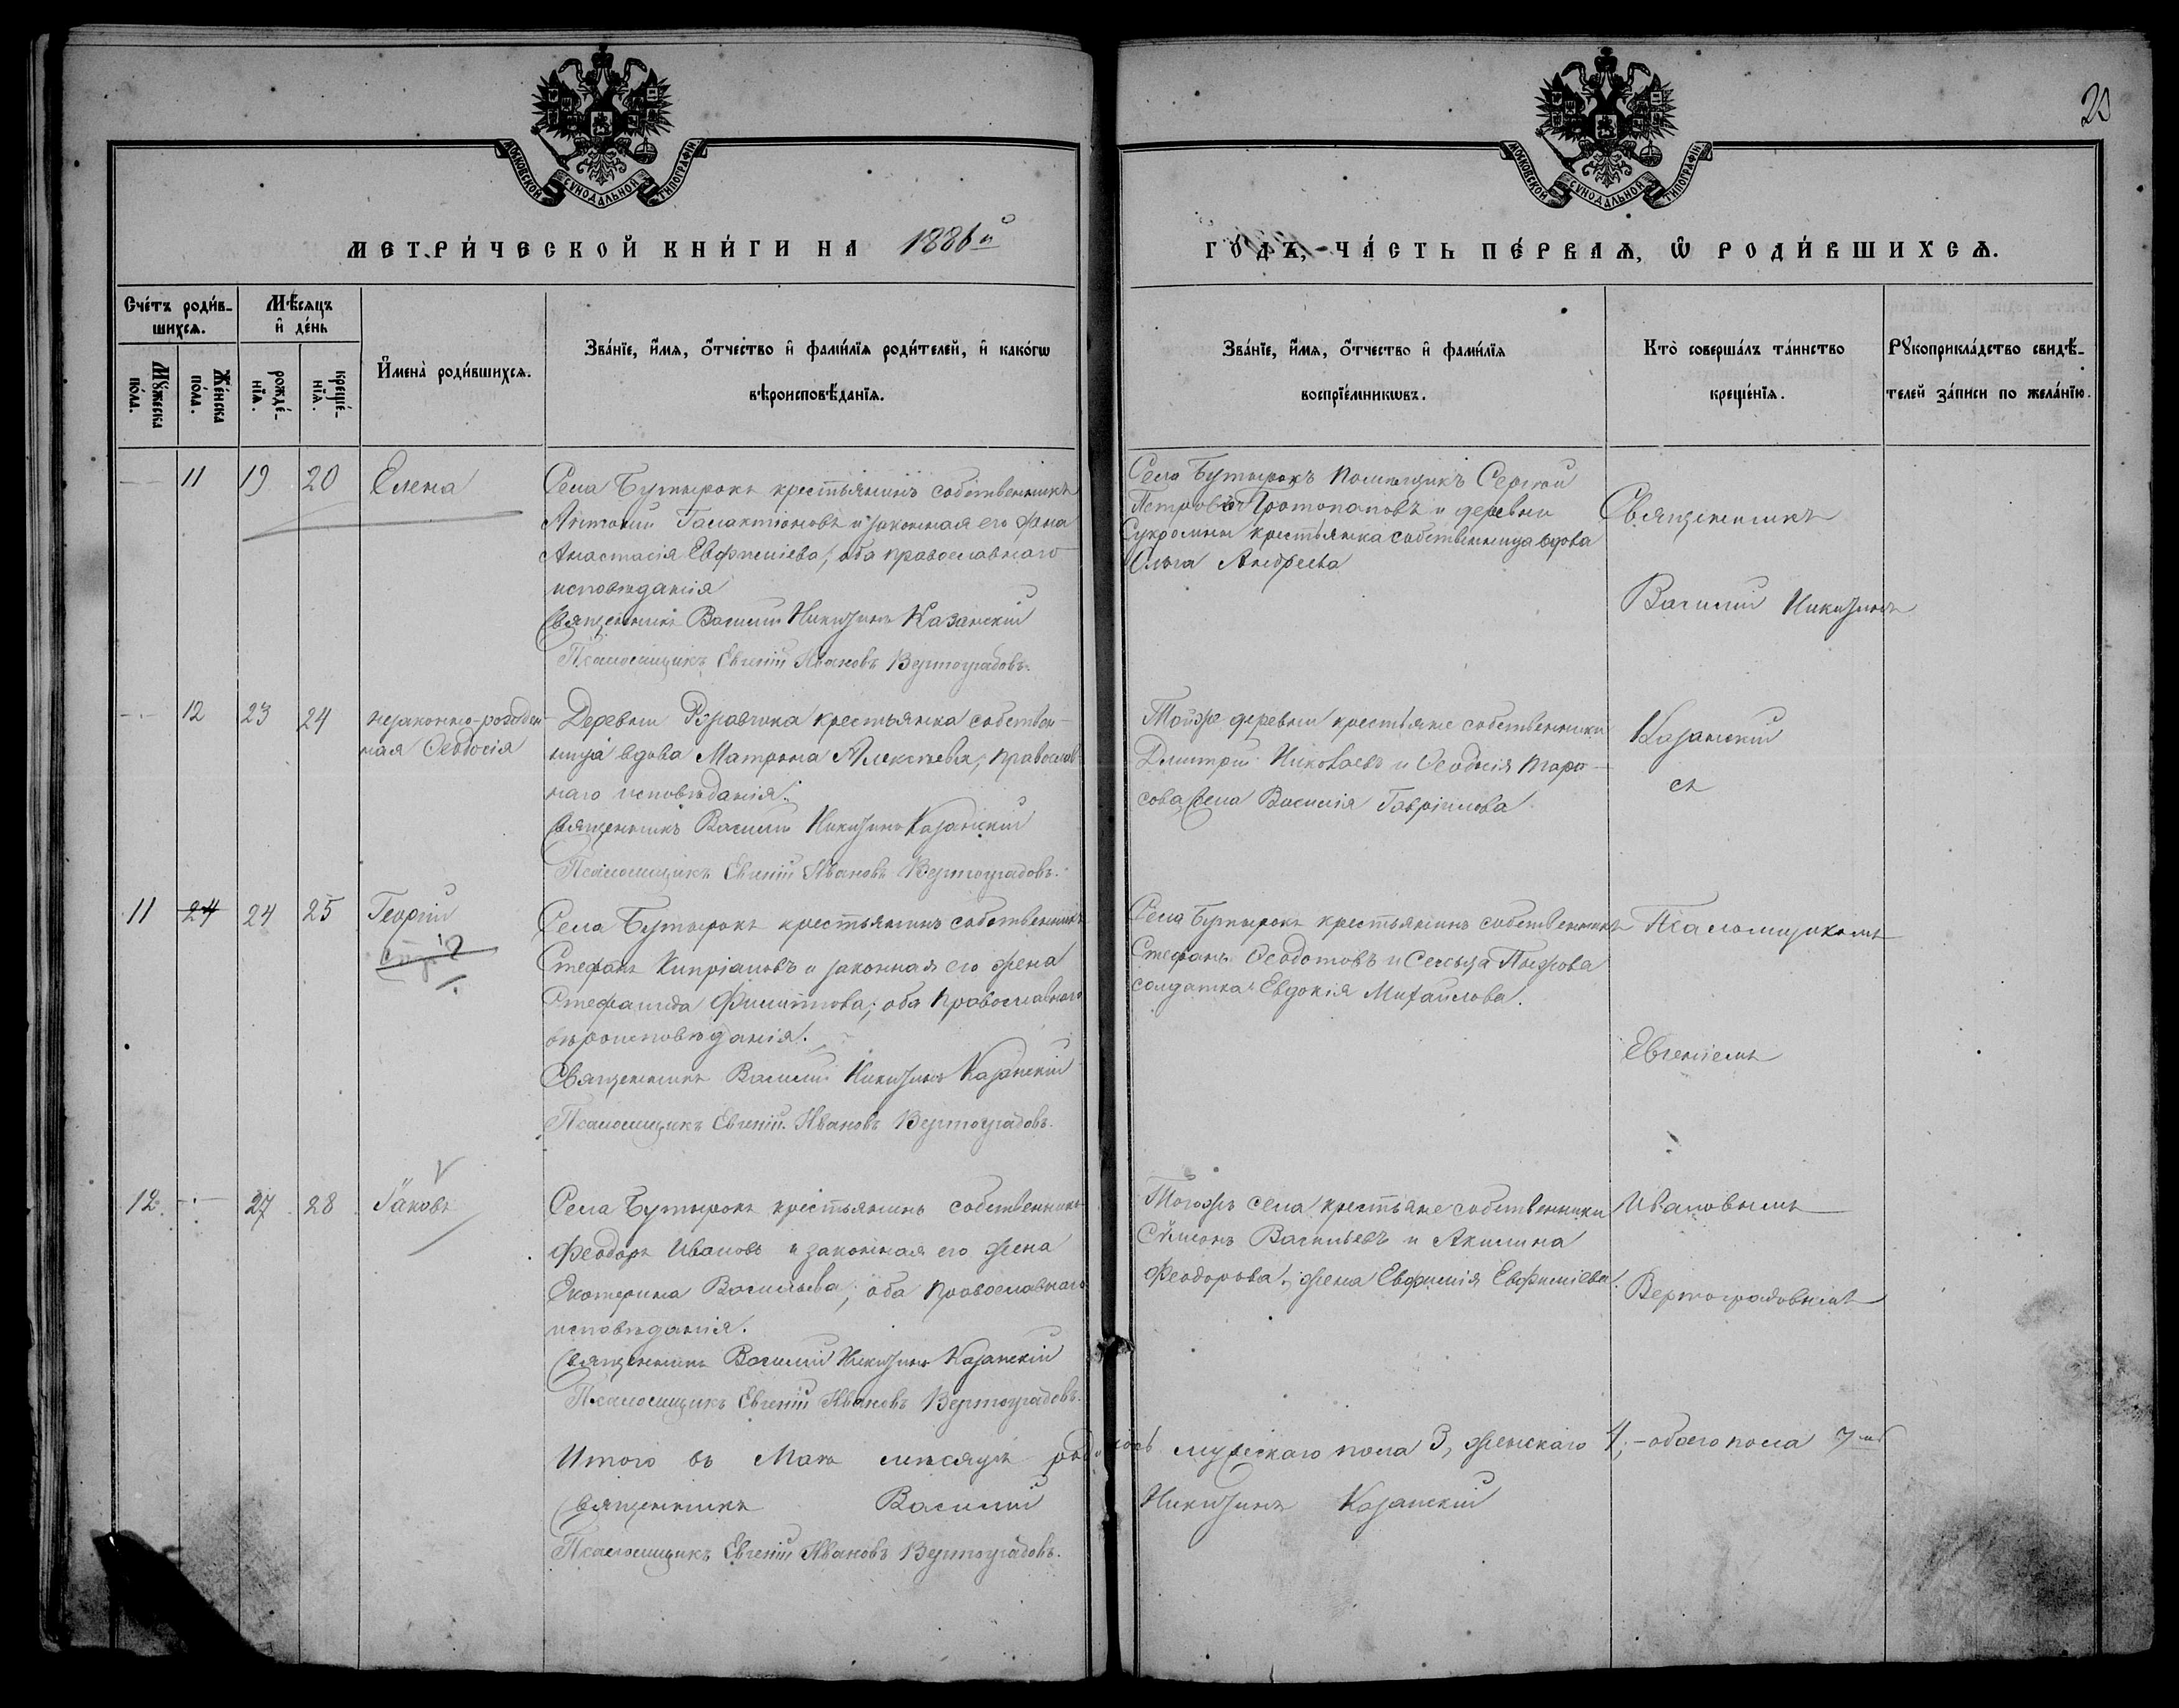 20
МОСКОВСКОЙ СѴНОДАЛЬНОЙ ТИПОГРАФІИ
МОСКОВСКОЙ СѴНОДАЛЬНОЙ ТИПОГРАФІИ
МЕТРИ́ЧЕСКОЙ КНИ́ГИ НА 1886й
ГО́ДЪ, ЧА́СТЬ ПЕ́РВАѦ, Ѽ РОДИ́ВШИХСѦ.
Сче́тъ роди́в-
шихсѧ.
Мѣ́сяцъ
и҆ де́нь
Мꙋ́жеска
по́ла.
Же́нска
по́ла.
рожде́-
нїѧ.
креще́-
нїѧ.
И҆мена̀ роди́вшихсѧ.
Зва́нїе, и҆́мѧ, ѻ҆́тчество и҆ фами́лїѧ роди́телей, и҆ како́гѡ
вѣроисповѣ́данїѧ.
Зва́нїе, и҆́мѧ, ѻ҆́тчество и҆ фами́лїѧ
воспрїе́мникѡвъ.
Кто̀ соверша́лъ та́инство
креще́нїѧ.
Рꙋкоприкла́дство свидѣ́-
телей за́писи по жела́нїю.
11 19 20 Елена
Села Бутырокъ крестьянинъ собственникъ
Антоній Галактіоновъ и законная его жена
Анастасія Евфиміева, оба православнаго
исповѣданія
Священникъ Василій Никитинъ Казанскій
Псаломщикъ Евгеній Ивановъ Вертоградовъ.
Села Бутырокъ помѣщикъ Сергѣй
Петровъ Протопоповъ и деревни
Сукромны крестьянка собственница вдова
Ольга Андреева
Священникъ
Василій Никитинъ
12 23 24 незаконно-рожден
ная Ѳеодосія
Деревни крестьянка собствен-
ница вдова Матрона Алексѣева, православ
наго исповѣданія.
Священникъ Василій Никитинъ Казанскій
Псаломщикъ Евгеній Ивановъ Вертоградовъ.
Тойже деревни крестьяне собственники
Дмитрій Николаевъ и Ѳеодосія Тара-
сова, жена Василія Гавріилова
Казанскій
съ
11 24 24 25 Георгій
Села Бутырокъ крестьянинъ собственникъ
Стефанъ Кипріановъ и законная его жена
Стефанида Филиппова; оба православнаго
вѣроисповѣданія.
Священникъ Василій Никитинъ Казанскій
Псаломщикъ Евгеній Ивановъ Вертоградовъ.
Села Бутырокъ крестьянинъ собственникъ
Стефанъ Ѳеодотовъ и Сельца
солдатка Евдокія Михайлова.
Псаломщикомъ
Евгеніемъ
12. 27 28 Іаковъ
Села Бутырокъ крестьянинъ собственникъ
Феодоръ Ивановъ и законная его жена
Екатерина Васильева; оба православнаго
исповѣданія.
Священникъ Василій Никитинъ Казанскій
Псаломщикъ Евгеній Ивановъ Вертоградовъ.
Тогожъ села крестьяне собственники
Сѵмеонъ Васильевъ и Акилина
Феодорова, жена Евфимія Евфиміева.
Ивановымъ
Вертоградовымъ
Итого въ Маѣ мѣсяцѣ родилось мужескаго пола 3, женскаго 4, - обоего пола 7мь
Священникъ Василій Никитинъ Казанскій
Псаломщикъ Евгеній Ивановъ Вертоградовъ.